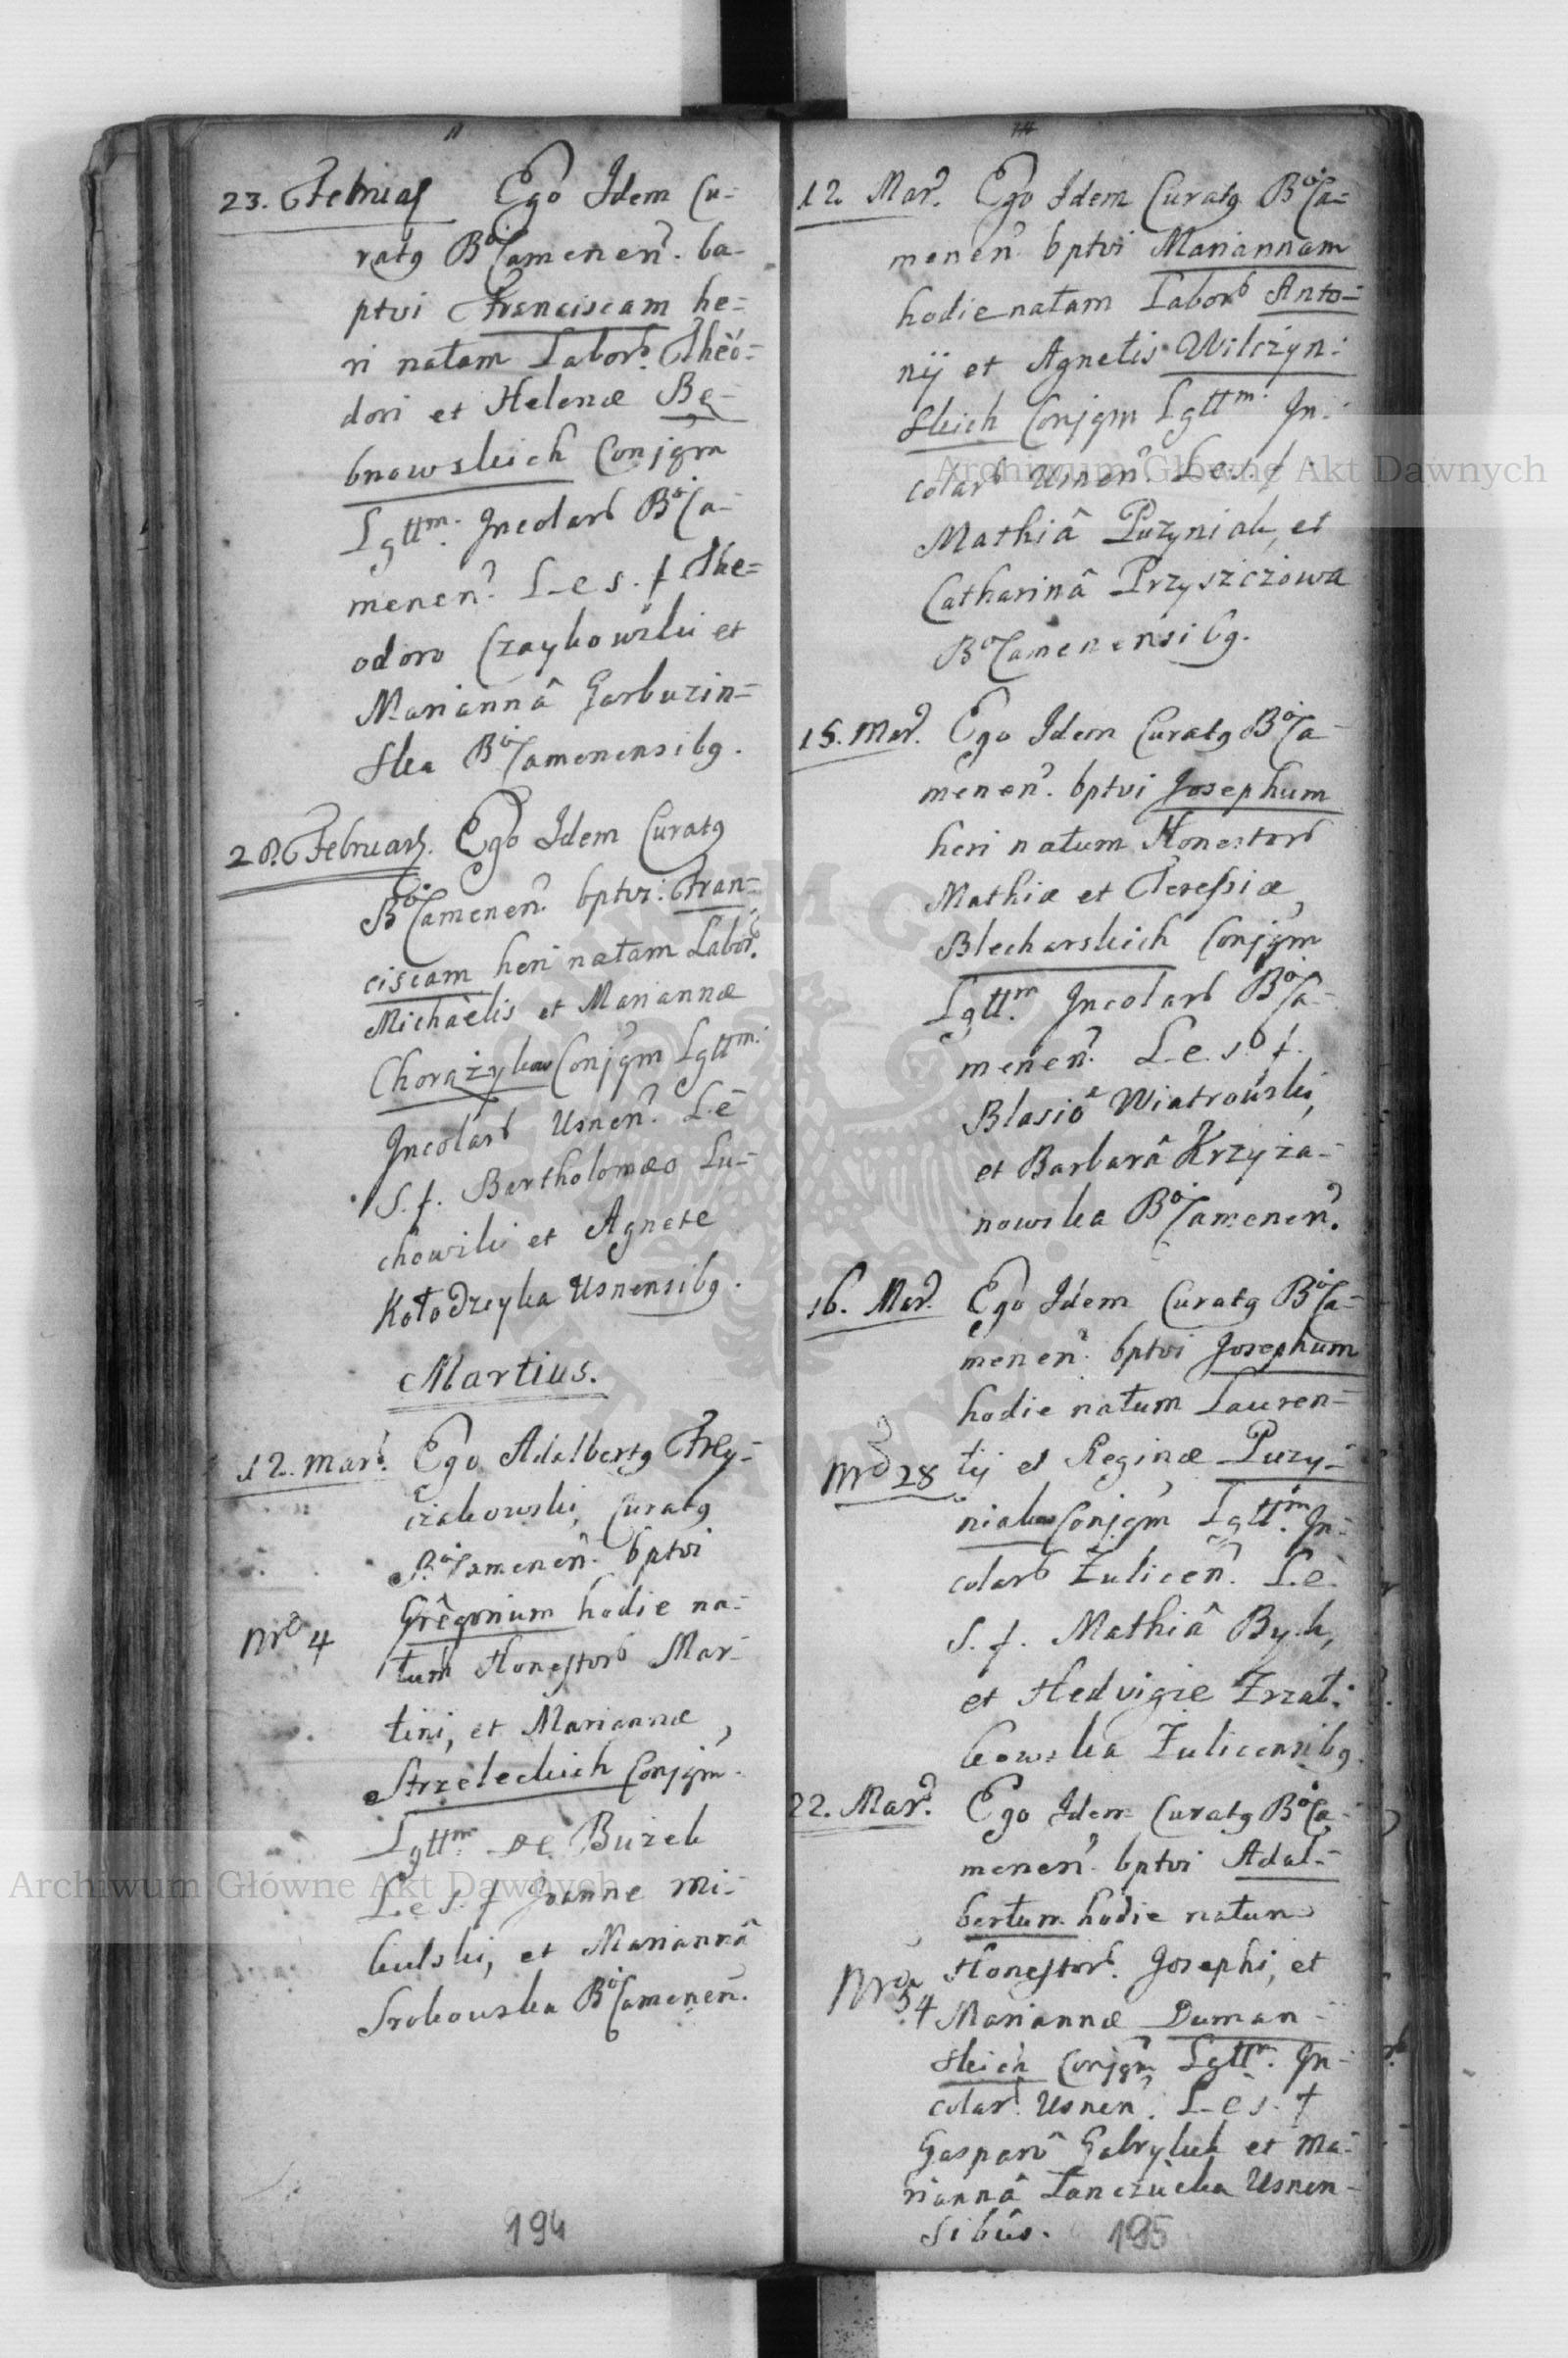 23. Februaŗ Ego Idem Cu-
ratꝯ BoCamenen. ba-
ptvi Franciscam he-
ri natam Labor. Theo-
dori et Helenæ Bę-
bnowskich Conjgm
Lgttm. Incolar BoCa-
menen. L e s. f The-
odoro Czaykowski et
Mariannâ Garbuzin-
ska BoCamenensibꝯ.
28. Februarij. Ego Idem Curatꝯ
BoCamenen. bptvi Fran-
ciscam heri natam Labor.
Michaèlis et Mariannæ
Chorążykow Conjgm Lgttm.
Incolar Usnen. L e
S. f. Bartholomæo Lu-
chowski et Agnete
Kołodzeyka Usnensibꝯ.
Martius.
12. Mar. Ego Adalbertꝯ Fry-
czakowski, Curatꝯ
BoCamenen. bptvi
Gregorium hodie na-
Nro 4
tum Honestor Mar-
tini, et Mariannæ,
Strzeleckich Conjgm.
Lgttm. de Buzek
L e s. f Joanne Mi-
kulski, et Mariannâ
Srokowska BoCamenen.
194
12. Mar. Ego Idem Curatꝯ BoCa-
menen. bptvi Mariannam
hodie natam Labor Anto-
nij et Agnetis Wilczyn-
skich Conjgm Lgttm. In-
colar Usnen. L e s. f
Mathiâ Puzyniak, et
Catharinâ Przyszczowa
BoCamenensibꝯ.
15. Mar. Ego Idem Curatꝯ BoCa-
menen. bptvi Josephum
heri natum Honestor
Mathiæ et Teressiæ,
Blecharskich Conjgm
Lgttm. Incolar BoCa-
menen. L e. s. f.
Blasio Wiatrowski,
et Barbarâ Krzyża-
nowska BoCamenen.
16. Mar. Ego Idem Curatꝯ BoCa-
menen. bptvi Josephum
hodie natum Lauren-
Nro 28 tij et Reginæ Puzy-
niakow Conjgm Lgttm. In-
colar Zulicen. L e.
S. f. Mathiâ Byk,
et Hedvigie Trzat-
kowska Zulicensibꝯ.
22. Mar. Ego Idem Curatꝯ BoCa-
menen. bptvi Adal-
bertum hodie natum
Honestor. Josephi, et
Nro 54 Mariannæ Duman-
skich Conjgm Lgttm. In-
colar. Usnen. L e s. f
Gasparo Gabryluk et Ma-
riannâ Lanczucka Usnen-
sibus. 195
Archiwum Główne Akt Dawnych
Archiwum Główne Akt Dawnych